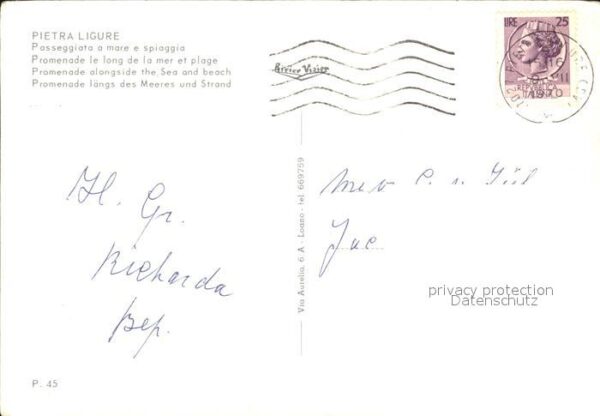 PIETRA LIGURE
Passeggiata a mare e spiaggia
Promenade le long de la mer et plage
Promenade alongside the Sea and beach
Promenade längs des Meeres und Strand
LIRE 25
1970
REPUBBLICA
ITALIANA
Via Aurelia, 6 A - Loano - tel. 669759
H. Gr.
Richarda
Bep.
Mev C. v.
Jac
privacy protection
Datenschutz
P. 45